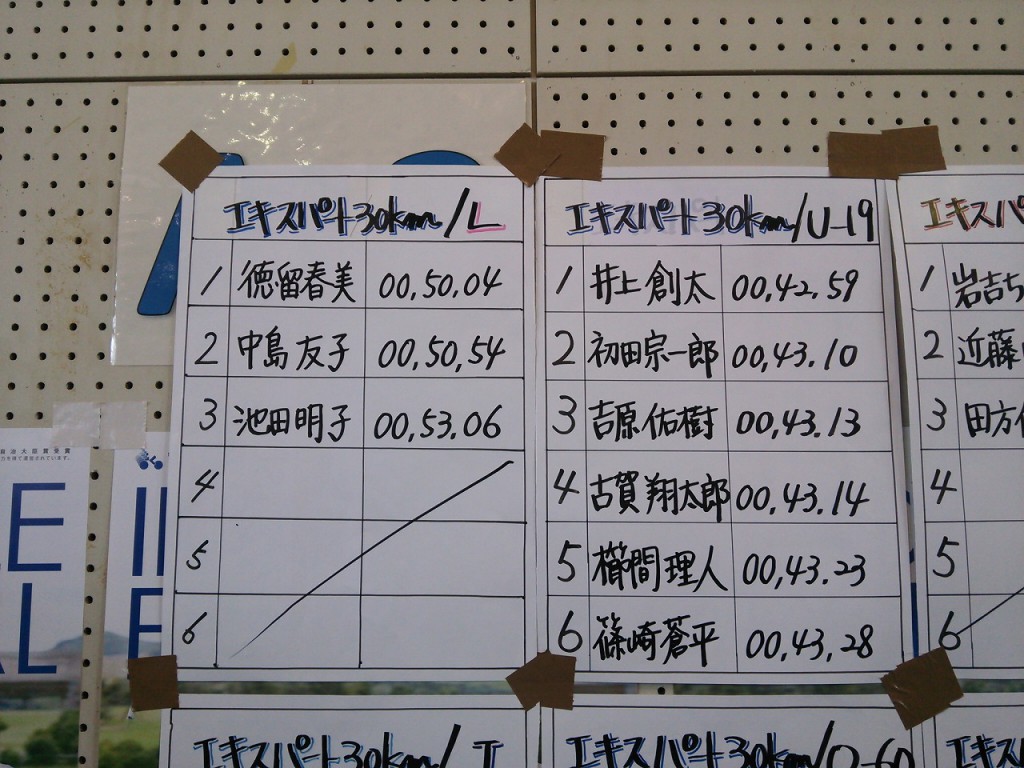 エキスパート30km/L
1 徳留春美 00,50,04
2 中島友子 00,50,54
3 池田明子 00,53.06
4
5
6
エキスパート30km/U-19
1 井上創太 00,42.59
2 初田宗一郎 00,43.10
3 吉原佑樹 00,43.13
4 古賀翔太郎 00,43.14
5 櫛間理人 00,43.23
6 篠崎蒼平 00,43,28
エキスパ
1 岩吉ち
2 近藤
3 田方
4
5
6
エキスパート30km/
エキスパート30km/O-60
エキス